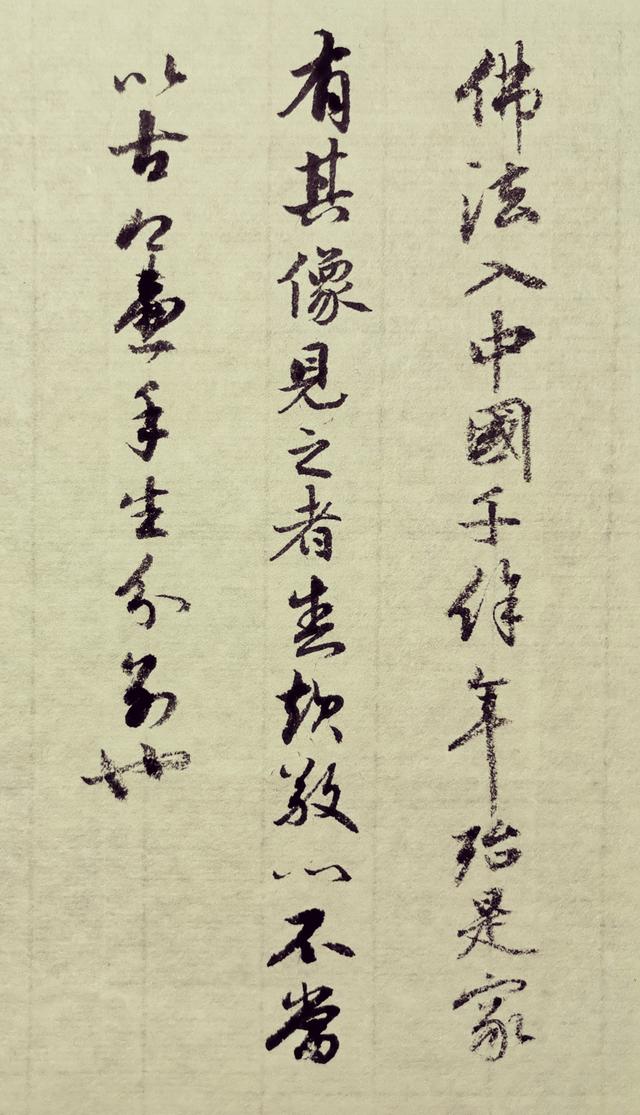 佛法入中國千餘年殆是家
有其像見之者生敬心不當
以古今畫手生分別也